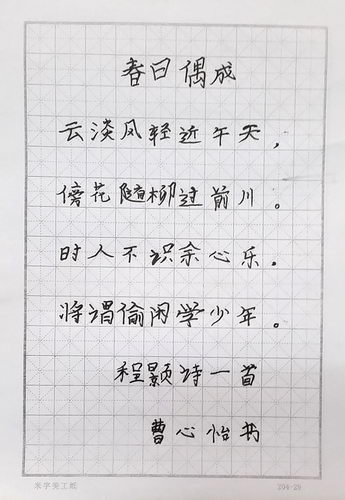 春日偶成
云淡风轻近午天，
傍花随柳过前川。
时人不识余心乐，
将谓偷闲学少年。
程颢诗一首
曹心怡书
米字美工纸 204-29